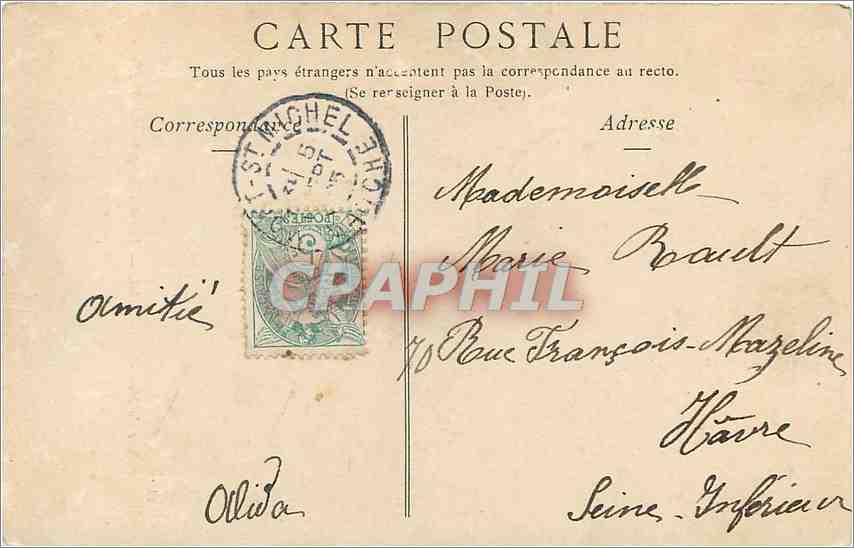 CARTE POSTALE
Tous les pays étrangers n'acceptent pas la correspondance au recto.
(Se renseigner à la Poste).
Correspondance
Adresse
ST MICHEL
POSTES
5
amitié
Alida
Mademoiselle
Marie Rault
70 Rue François-Mazeline
Hâvre
Seine-Inférieur
CPAPHIL